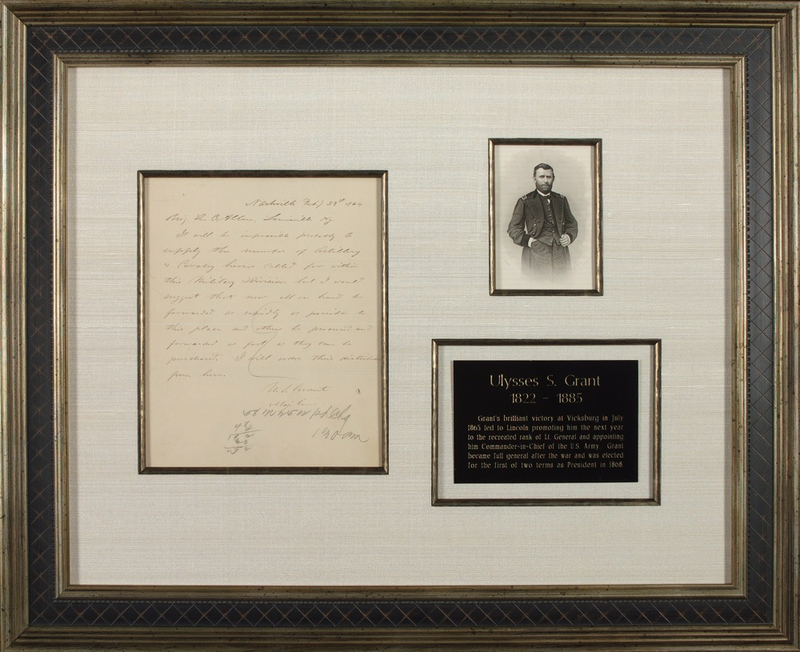 Nashville Feb'y 28th 1864
Brig. Gn. R. Allen, Louisville Ky.
It will be impossible precisely to
supply the number of Artillery
& Cavalry horses called for within
this Military Division but I would
suggest that now all on hand be
forwarded as rapidly as possible to
this place and others be procured and
forwarded as fast as they can be
purchased. I will order their distribution
from here.
U. S. Grant
Maj. Gn.
Ulysses S. Grant
1822 - 1885
Grant's brilliant victory at Vicksburg in July
1863 led to Lincoln promoting him the next year
to the recreated rank of Lt. General and appointing
him Commander-in-Chief of the U.S. Army. Grant
became full general after the war and was elected
for the first of two terms as President in 1868.